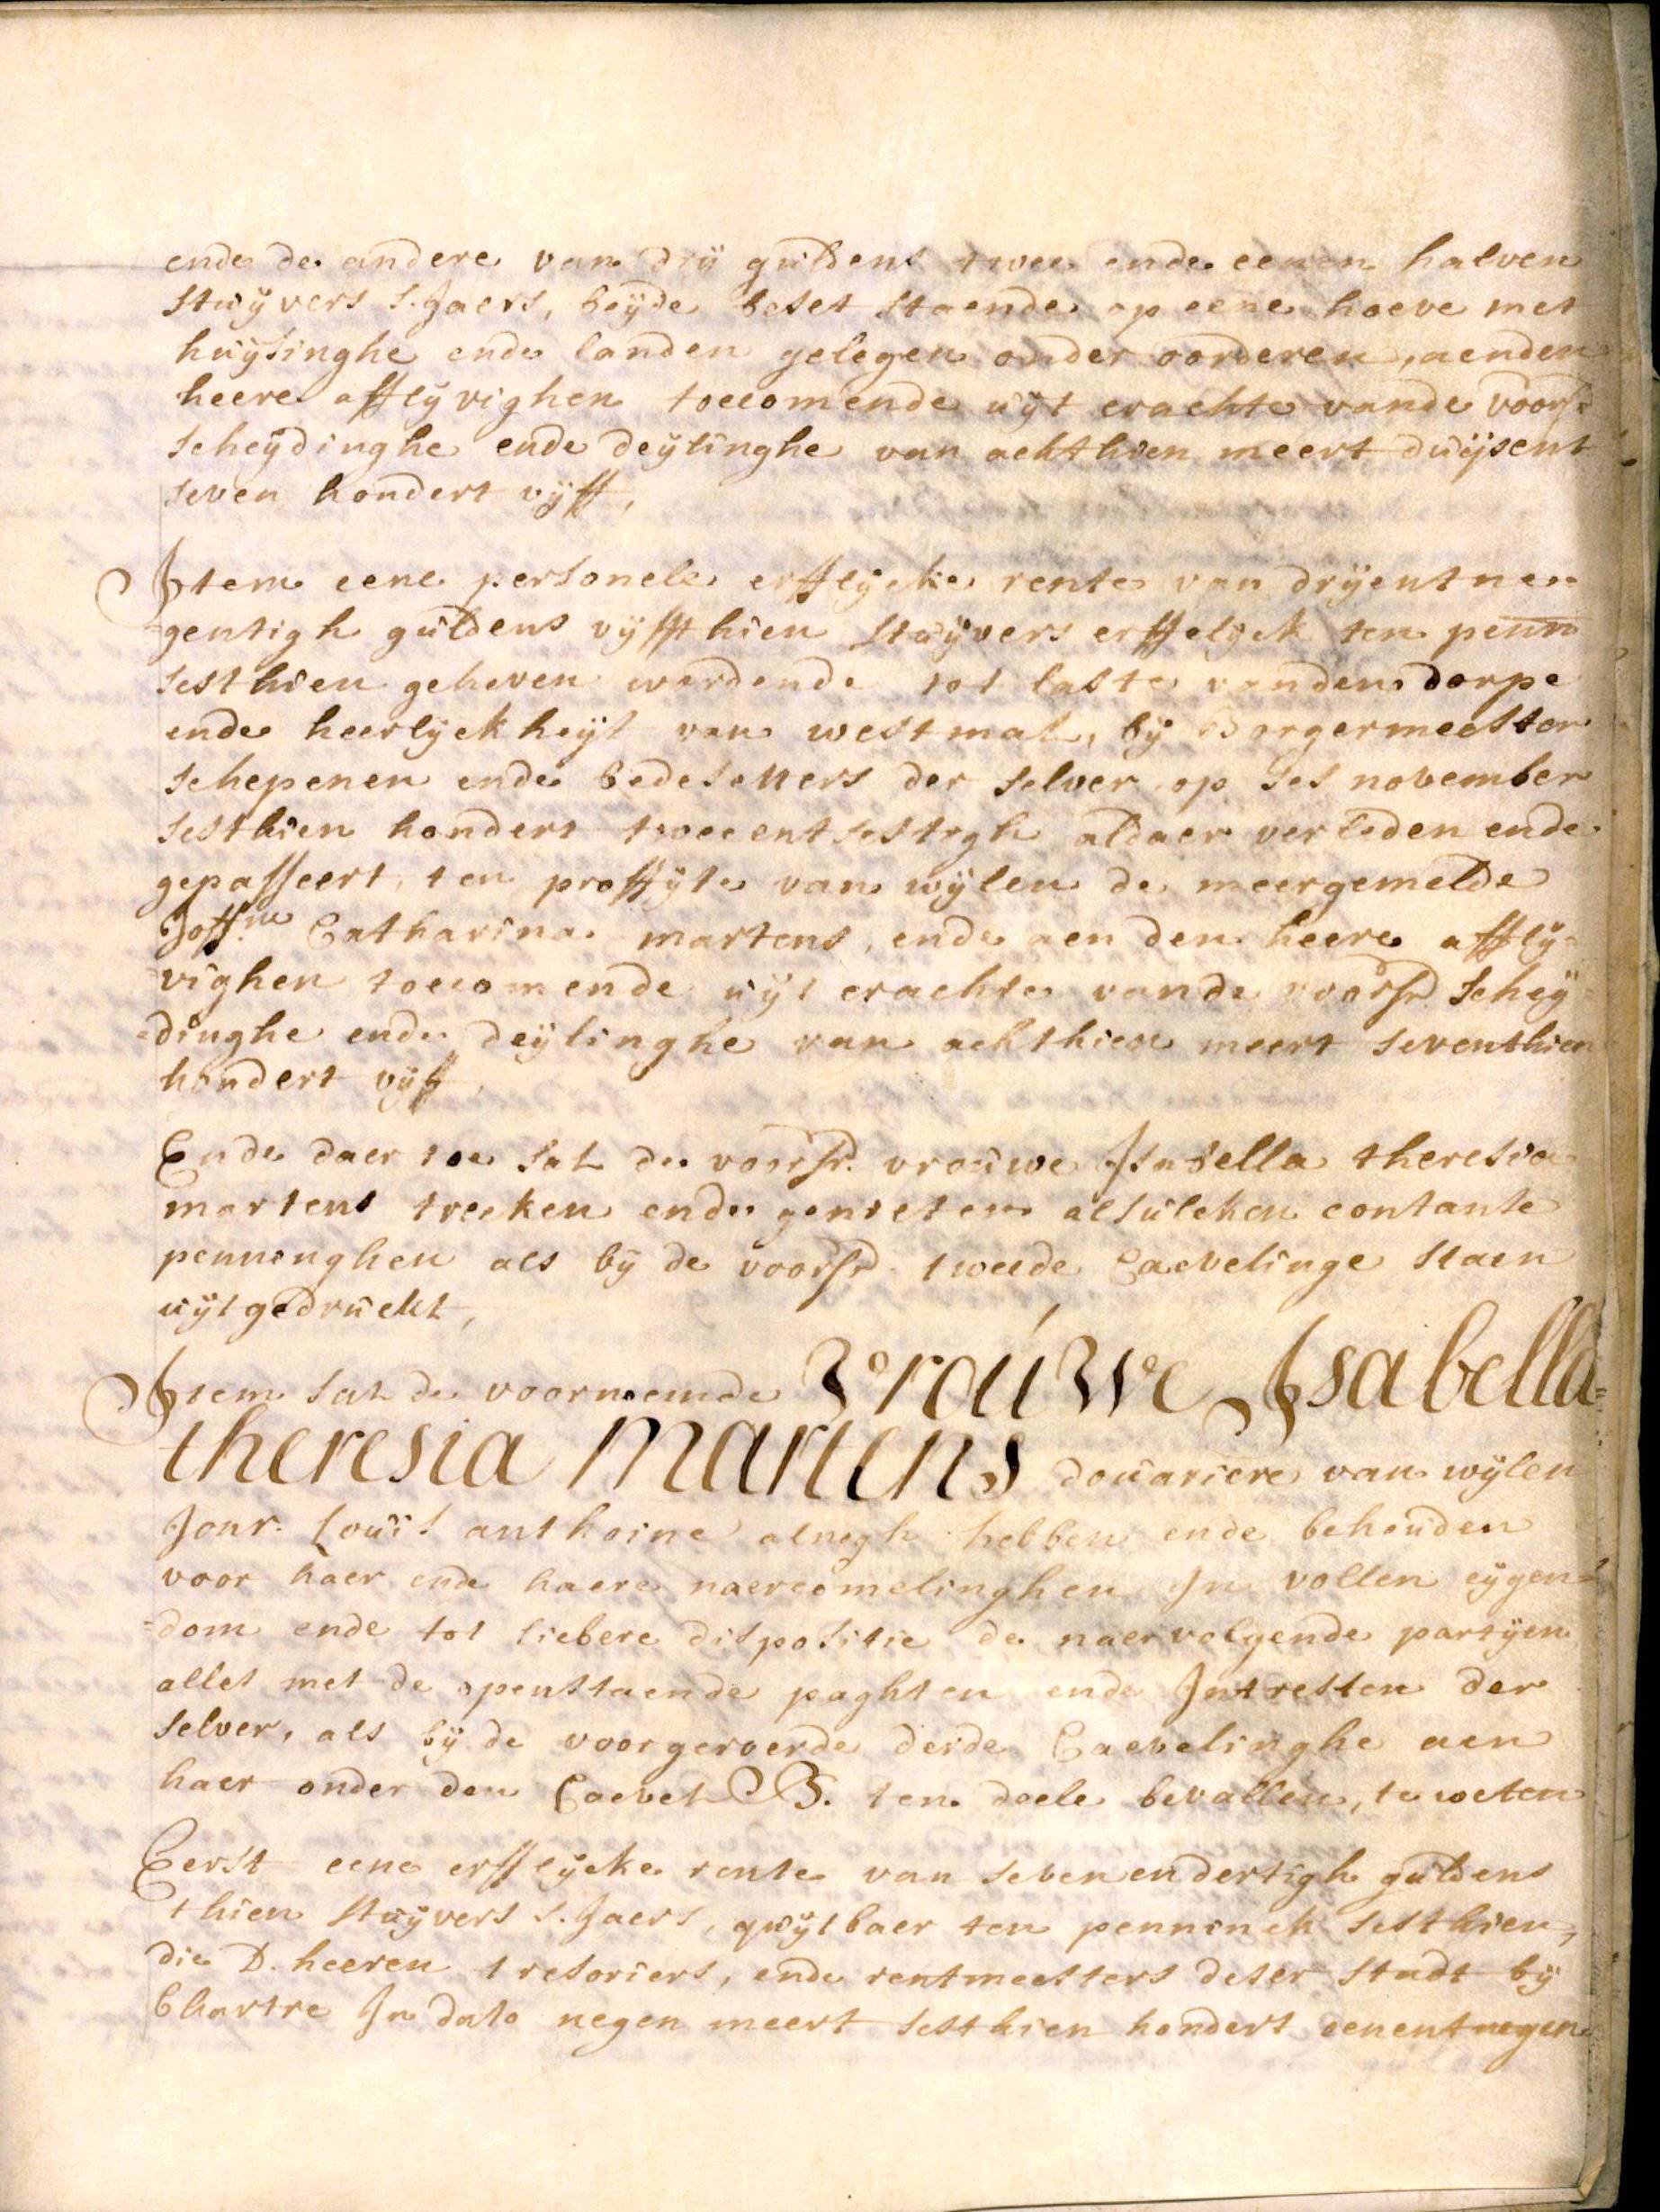 ende de andere van drÿ guldens twee ende eenen halven
stuÿvers s. Jaers, beÿde beset staende op eene hoeve met
huÿsinghe ende landen gelegen onder oorderen, aenden
heere afflÿvighen toecomende uÿt crachte vande voors.
scheÿdinghe ende deÿlinghe van achthien meert duÿsent
seven hondert vÿff,
Item eene personele erfflÿcke rente van drÿentne-
gentigh guldens vÿffthien stuÿvers erffelÿck ten penn
sesthien geheven werdende tot laste vanden dorpe
ende heerlÿckheÿt van westmal, bÿ Borgermeester
schepenen ende bedesetters der selver op ses november
sesthien hondert tweentsestigh aldaer verleden ende
gepasseert, ten proffÿte van wÿlen de meergemelde
Joffre. Catharina martens, ende aen den heere afflÿ-
vighen toecomende uÿt crachte vande voorsr. scheÿ-
dinghe ende deÿlinghe van achthien meert seventhien
hondert vÿff,
Ende daer toe sal de voorsr. vrouwe Isabella theresia
martens trecken ende genieten alsulcken contante
penninghen als bÿ de voorsr. tweede Caevelinge staen
uÿtgedruckt,
Item sal de voornoemde Vrouwe Isabella
theresia Martens douariere van wÿlen
Jonr. Louis anthoine alnegh hebben ende behouden
voor haer ende haere naercomelinghen In vollen eÿgen-
dom ende tot liebere dispositie de naervolgende partÿen
alles met de openstaende paghten ende Intresten der
selver, als bÿ de voorgeroerde derde Caevelinghe aen
haer onder den Caevel B. ten deele bevallen, te weten
Eerst eene erfflÿcke rente van sevenendertigh guldens
thien stuÿvers s. Jaers, qwÿtbaer ten penninck sesthien,
die D. heeren tresoriers, ende rentmeesters deser stadt bÿ
Chartre In dato negen meert sesthien hondert eenentnegen